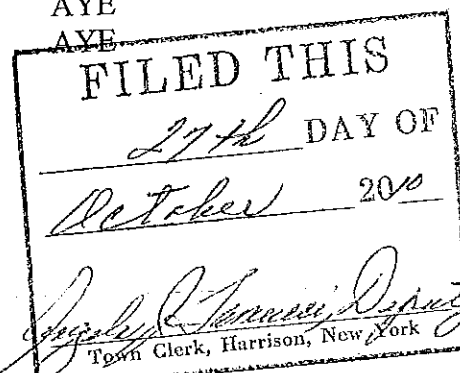 AYE
AYE
FILED THIS
27th DAY OF
October 2010
Deputy
Town Clerk, Harrison, New York